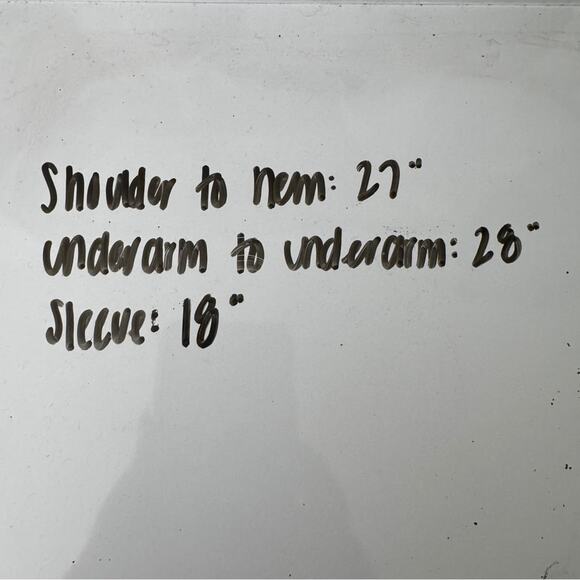 Shoulder to hem: 27"
underarm to underarm: 28"
Sleeve: 18"